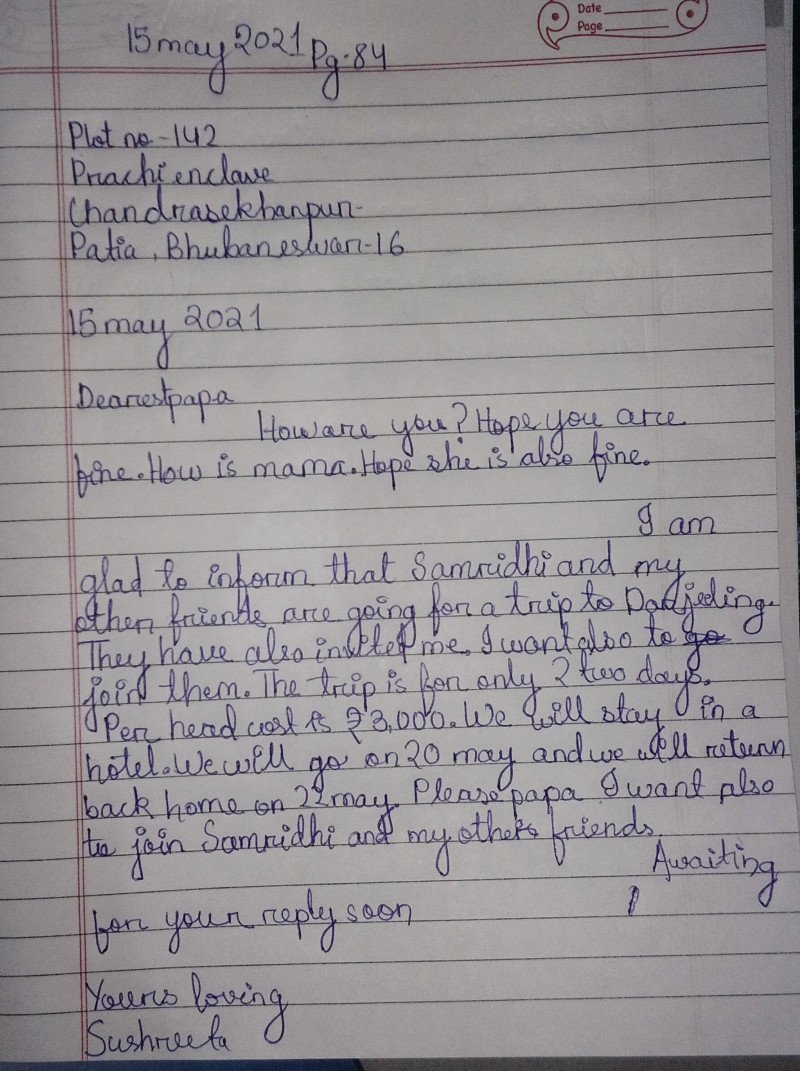 Date
Page
15 may 2021 Pg-84
Plot no-142
Prachi enclave
Chandrasekharpur-
Patia, Bhubaneswar-16
15 may 2021
Dearest papa
How are you? Hope you are
fine. How is mama. Hope she is also fine.
I am
glad to inform that Samridhi and my
other friends are going for a trip to Darjeeling.
They have also invited me. I want also to go
join them. The trip is for only 2 two days.
Per head cost is ₹3,000. We will stay in a
hotel. We will go on 20 may and we will return
back home on 22 may. Please papa I want also
to join Samridhi and my others friends.
Awaiting
for your reply soon
Yours loving
Sushreeta